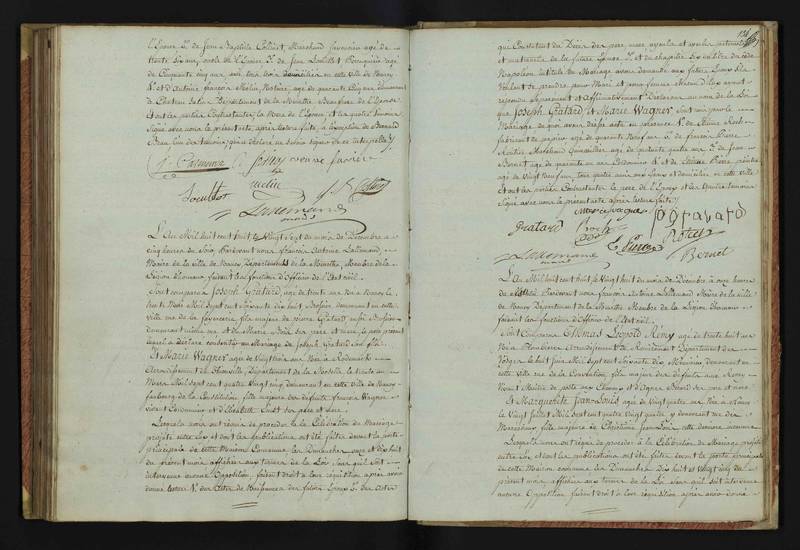 l'Epoux 3° de Jean Baptiste Collict, Marchand faïencier agé de
trente six ans, oncle de l'Epouse 3° de Jean Loullot Perruquier agé
de Cinquante cinq ans tous trois domiciliés en cette ville de Nancy
4° et d'Antoine françois Notaire, agé de quarante cinq ans demeurant
à Chateau Salin Département de la Meurthe, Beau frère de l'Epouse
Et ont les parties Contractantes, la Mère de l'Epouse, et les quatre temoins
Signé avec nous le présent acte, après lecture faite, à l'exception de
Beau l'un des temoins, qui a déclaré ne savoir signer de ce interpellé
veuve
Lallemand
L'An Mil huit cent huit le Vingt Sept du mois de Décembre a
cinq heures du Soir Pardevant nous françois Antoine Lallemand,
Maire de la ville de Nancy Département de la Meurthe, Membre de la
Légion d'honneur faisant les fonctions d'Officier de l'Etat civil.
Sont comparus Joseph Gratard, agé de trente ans Né à Nancy le
trente Mars Mil Sept cent Soixante dix huit Brossier demeurant en cette
ville rue de la fils majeur de pierre Gratard aussi Brossier
demeurant même rue et de Marie ses père et mère, le père présent
lequel a déclaré consentir au Mariage de Joseph Gratard son fils.
Et Marie Wagner agée de Vingt trois ans Née à Rodemack
Arrondissement de Thionville, Département de la Moselle, le trente un
Mars Mil Sept cent quatre Vingt cinq demeurant en cette ville de Nancy
faubourg de la Constitution, fille majeure des défunts françois Wagner
vivant Cordonnier et d'Elisabeth ses père et mère.
Lesquels nous ont requis de procéder à la Célébration du Mariage
projetté entre Eux et dont les publications ont été faites devant la porte
principale de cette Maison Commune les Dimanches onze et dix huit
du présent mois affichées aux termes de la Loi sans qu'il soit
intervenu aucune Opposition, faisant droit à leur réquisition après avoir
donné lecture 1° des Actes de Naissances des futurs Epoux 2° des Actes
124
qui Constatent du Décès des père, mère ayeuls et ayeules paternels
et maternels de la future Epouse 3° et du chapitre Six du titre du code
Napoléon intitulé du Mariage avons demandé aux futurs Epoux s'ils
Veulent se prendre pour Mari et pour femme chacun d'Eux ayant
répondu Séparément et Affirmativement Déclarons au nom de la Loi
que Joseph Gratard et Marie Wagner Sont unis par le
Mariage de quoi avons dressé acte en présence 1° de
fabricant de papier agé de quarante Neuf ans 2° de françois Pierre
agé de quarante quatre ans 3° de Jean
Bernel agé de quarante un ans 4° et de peintre
agé de Vingt Neuf ans, tous quatre amis aux Epoux et domiciliés en cette ville
Et ont les parties Contractantes le père de l'Epoux et les quatre temoins
Signé avec nous le présent acte après lecture faite
marie vagner
pgratard
gratard
Lallemand
Bernel
L'An Mil huit cent huit le Vingt huit du mois de Décembre à onze heures
du Matin Pardevant nous françois Antoine Lallemand Maire de la ville
de Nancy Département de la Meurthe Membre de la Légion d'honneur
faisant les fonctions d'Officier de l'Etat civil.
Sont Comparus Thomas Léopold Rémy agé de trente huit ans
Né à Plombières Arrondissement de Remiremont Département des
Vosges le huit Juin Mil Sept cent Soixante dix, demeurant en
cette ville rue de la Constitution, fils majeur des défunts Remy
Maitre de poste aux Chevaux et d'Agnès Bernard ses père et mère
Et Marguerite Jean-Louis agée de Vingt quatre ans Née à Nancy
le Vingt Juillet Mil Sept cent quatre Vingt quatre y demeurant rue des
Maréchaux fille majeure de Christine Jean-Louis cette dernière
Lesquels nous ont requis de procéder à la Célébration du Mariage projetté
entre Eux et dont les publications ont été faites devant la porte principale
de cette Maison commune les Dimanches dix huit et Vingt cinq du
présent mois affichées aux termes de la Loi sans qu'il soit intervenu
aucune Opposition faisant droit à leur réquisition après avoir donné